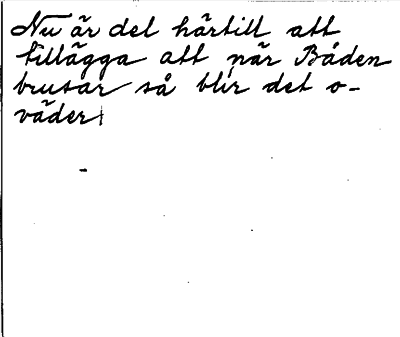 Nu är det härtill att
tillägga att när Båden
brusar så blir det o-
väder